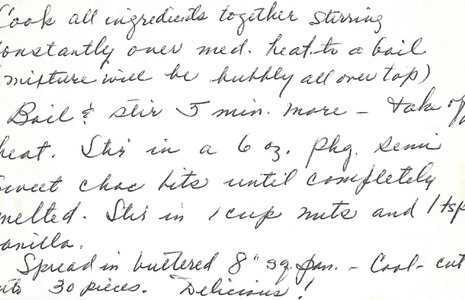 Cook all ingredients together stirring
constantly over med. heat to a boil
(mixture will be bubbly all over top)
Boil & stir 5 min. more - take off
heat. Stir in a 6 oz. pkg. semi
sweet choc bits until completely
melted. Stir in 1 cup nuts and 1 tsp
vanilla.
Spread in buttered 8" sq. pan. - Cool - cut
into 30 pieces. Delicious!